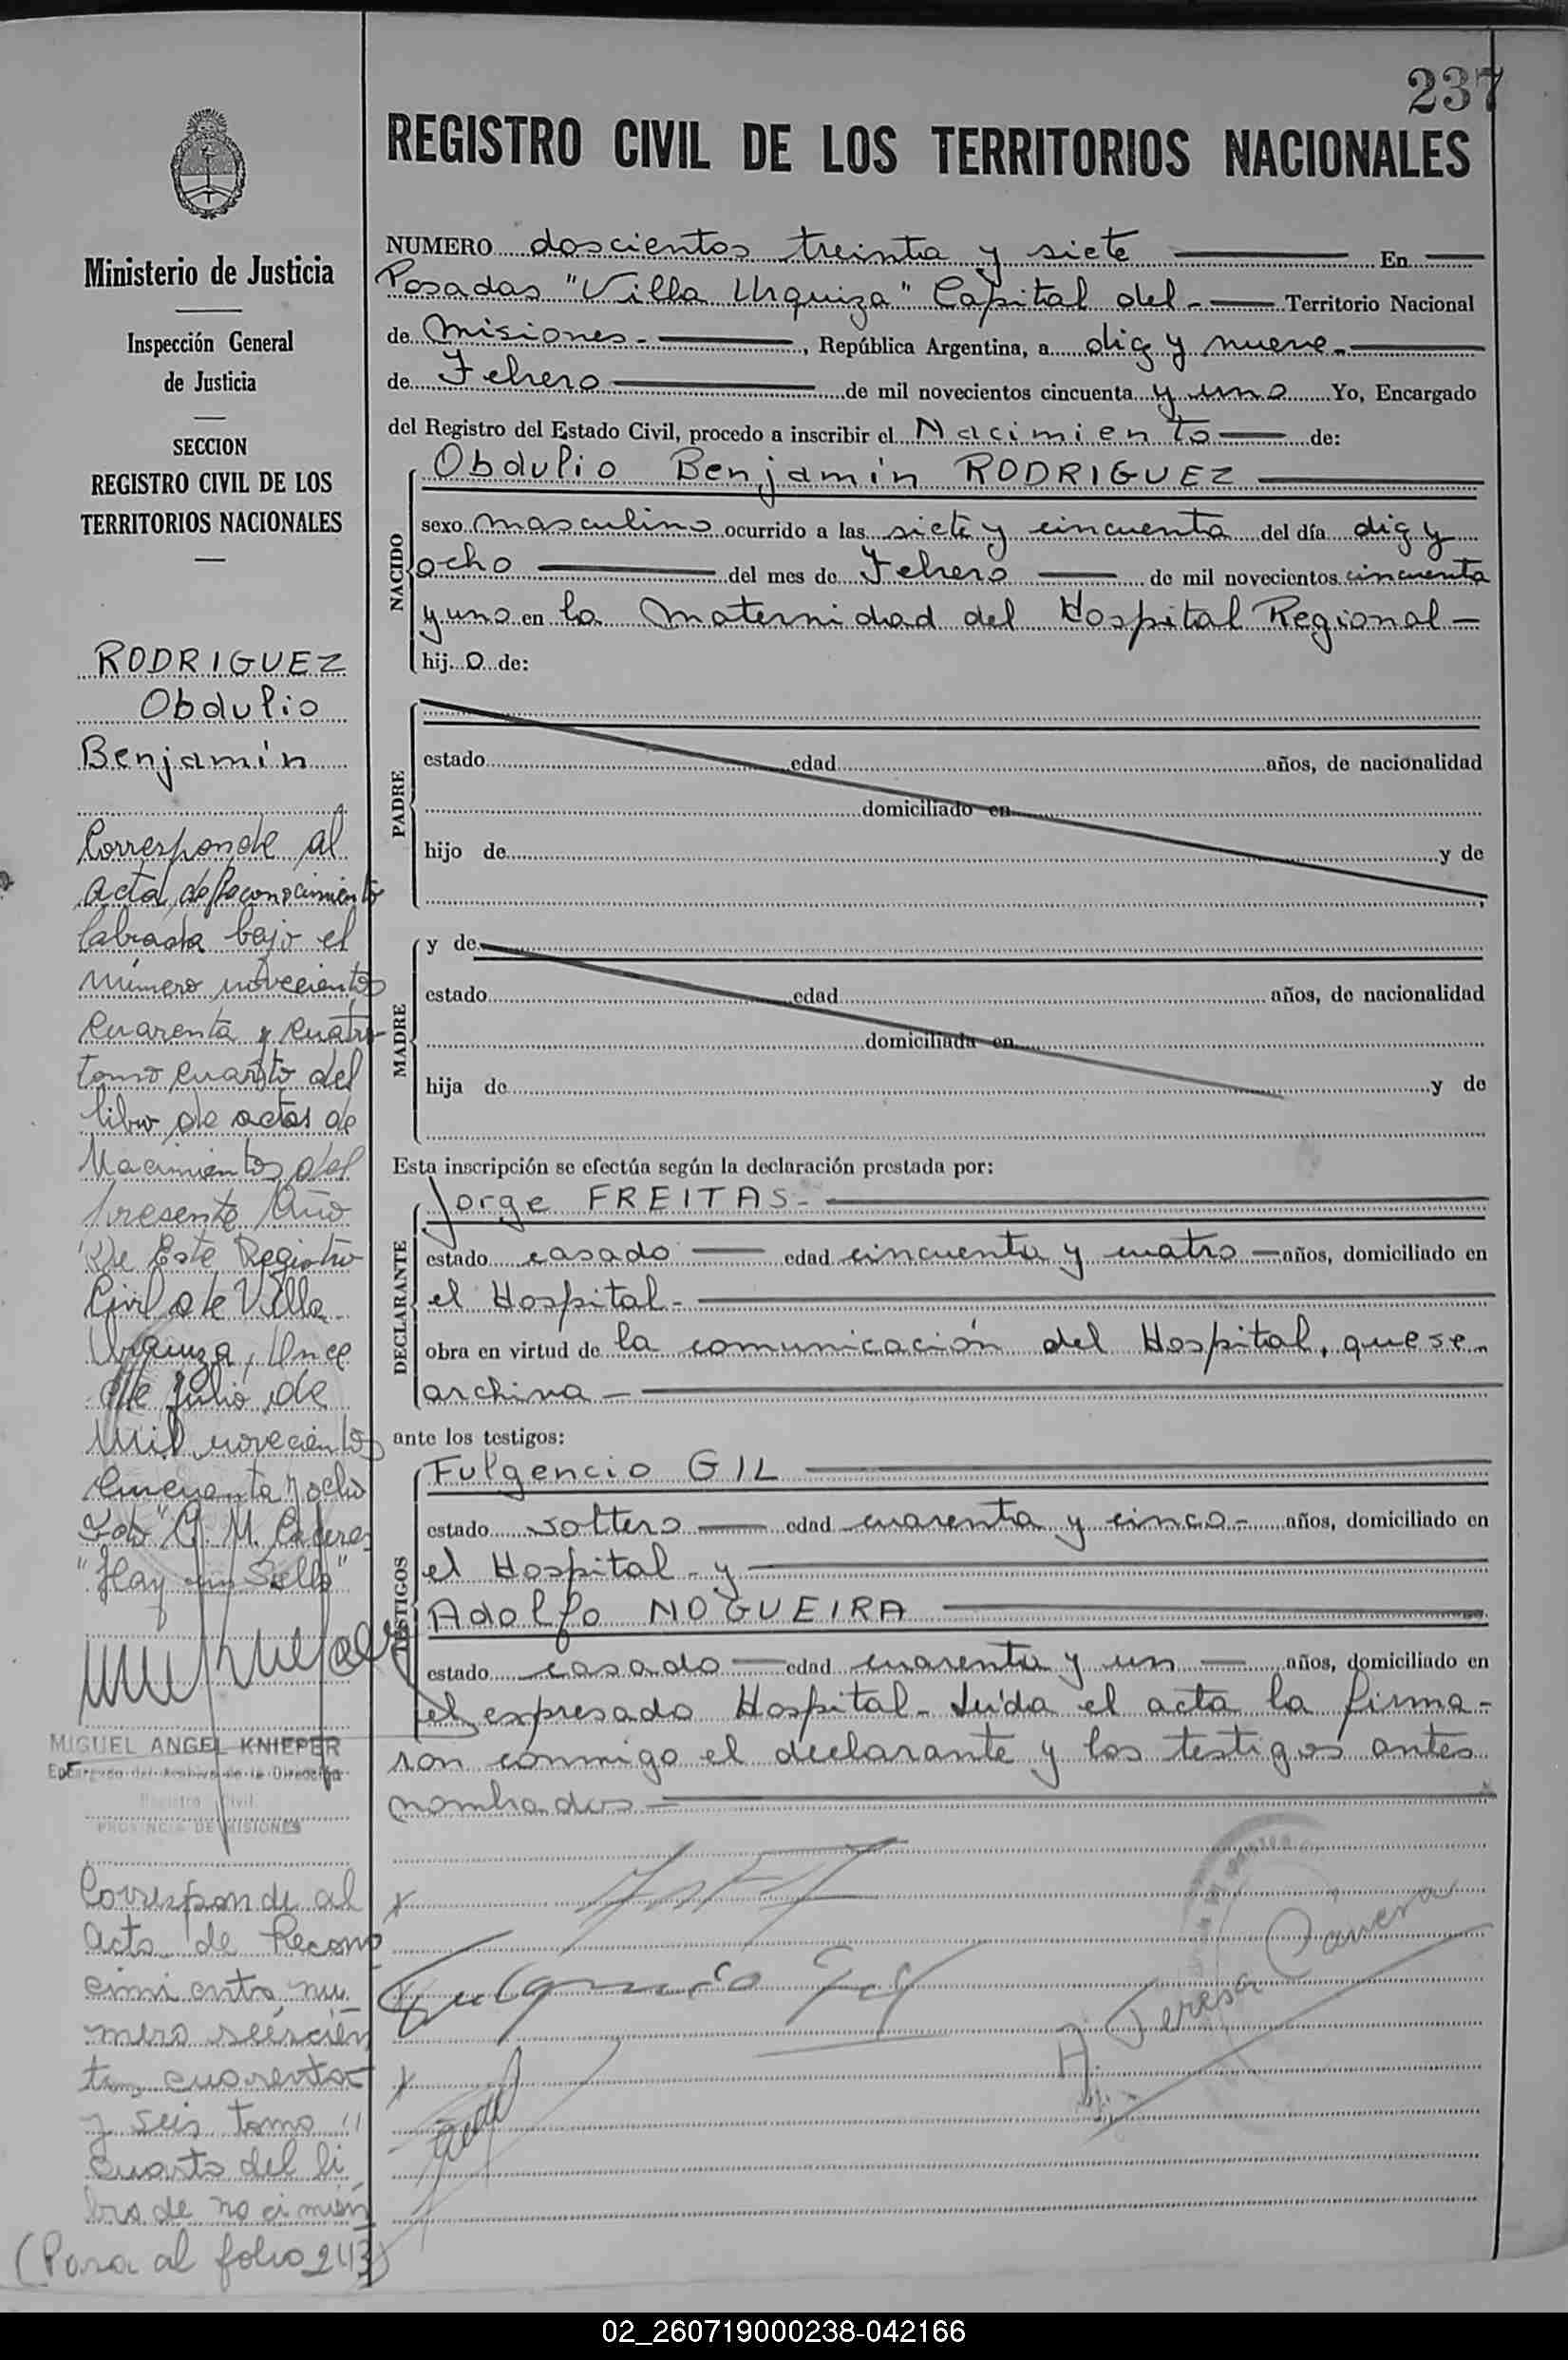 237
REGISTRO CIVIL DE LOS TERRITORIOS NACIONALES
Ministerio de Justicia
Inspección General
de Justicia
SECCION
REGISTRO CIVIL DE LOS
TERRITORIOS NACIONALES
RODRIGUEZ
Obdulio
Benjamín
Corresponde al
Acta de Reconocimiento
labrada bajo el
número novecientos
cuarenta y cuatro
tomo cuarto del
libro de actas de
Nacimientos del
presente Año
de Este Registro
Civil de Villa
Urquiza, Once
de julio de
mil novecientos
cincuenta y ocho
Fdo "G. M. Caceres
"Hay un Sello"
MIGUEL ANGEL KNIEPER
Encargado del Archivo de la Dirección
Registro Civil
PROVINCIA DE MISIONES
Corresponde al
Acta de Recono
cimiento nu
mero seiscien
tos cuarenta
y seis tomo
cuarto del li
bro de nacimien
(Pasa al folio 243)
NUMERO doscientos treinta y siete En
Posadas "Villa Urquiza" Capital del - Territorio Nacional
de Misiones - , República Argentina, a diez y nueve -
de Febrero de mil novecientos cincuenta y uno Yo, Encargado
del Registro del Estado Civil, procedo a inscribir el Nacimiento de:
NACIDO
Obdulio Benjamín RODRIGUEZ
sexo masculino ocurrido a las siete y cincuenta del día diez y
ocho del mes de Febrero de mil novecientos cincuenta
y uno en la Maternidad del Hospital Regional -
hij o de:
PADRE
estado edad años, de nacionalidad
domiciliado en
hijo de y de
MADRE
y de
estado edad años, de nacionalidad
domiciliada en
hija de y de
Esta inscripción se efectúa según la declaración prestada por:
DECLARANTE
Jorge FREITAS -
estado casado edad cincuenta y cuatro años, domiciliado en
el Hospital -
obra en virtud de la comunicación del Hospital, que se
archiva -
ante los testigos:
TESTIGOS
Fulgencio GIL
estado soltero edad cuarenta y cinco - años, domiciliado en
el Hospital - y
Adolfo NOGUEIRA
estado casado edad cuarenta y un años, domiciliado en
el expresado Hospital - Leída el acta la firma-
ron conmigo el declarante y los testigos antes
nombrados -
Fulgencio Gil
A. Teresa Cánera
02_260719000238-042166